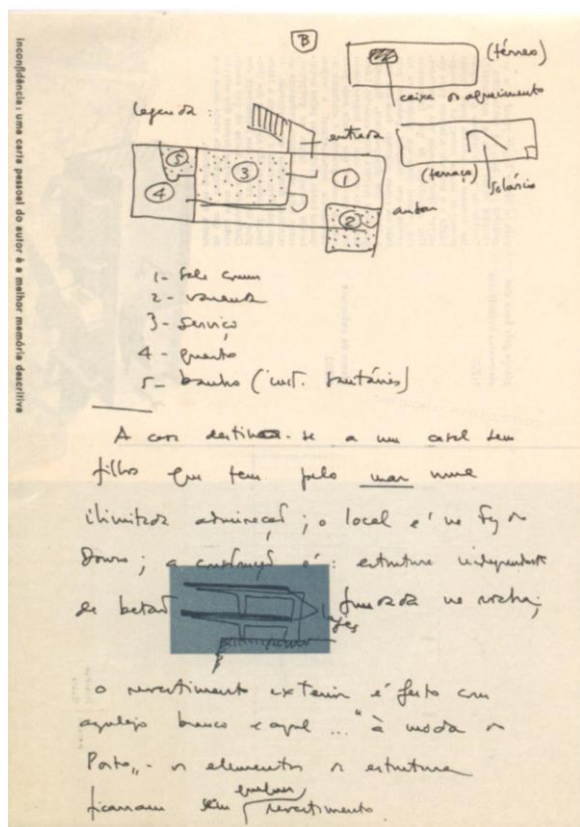 inconfidência: uma carta pessoal do autor é a melhor memória descritiva
B
(térreo)
caixa de aquecimento
legenda:
entrada
5
3
1
4
2
andar
(terraço)
solário
1- Sala comum
2- varanda
3- Serviço
4- quarto
5- banho (inst. sanitárias)
A casa destina-se a um casal sem
filhos que tem pelo mar uma
ilimitada admiração; o local é na Foz do
Douro; a construção é: estrutura independente
de betão fundada na rocha;
lajes
o revestimento exterior é feito com
azulejo branco e azul ... "à moda do
Porto" - os elementos de estrutura
ficaram sem qualquer revestimento.